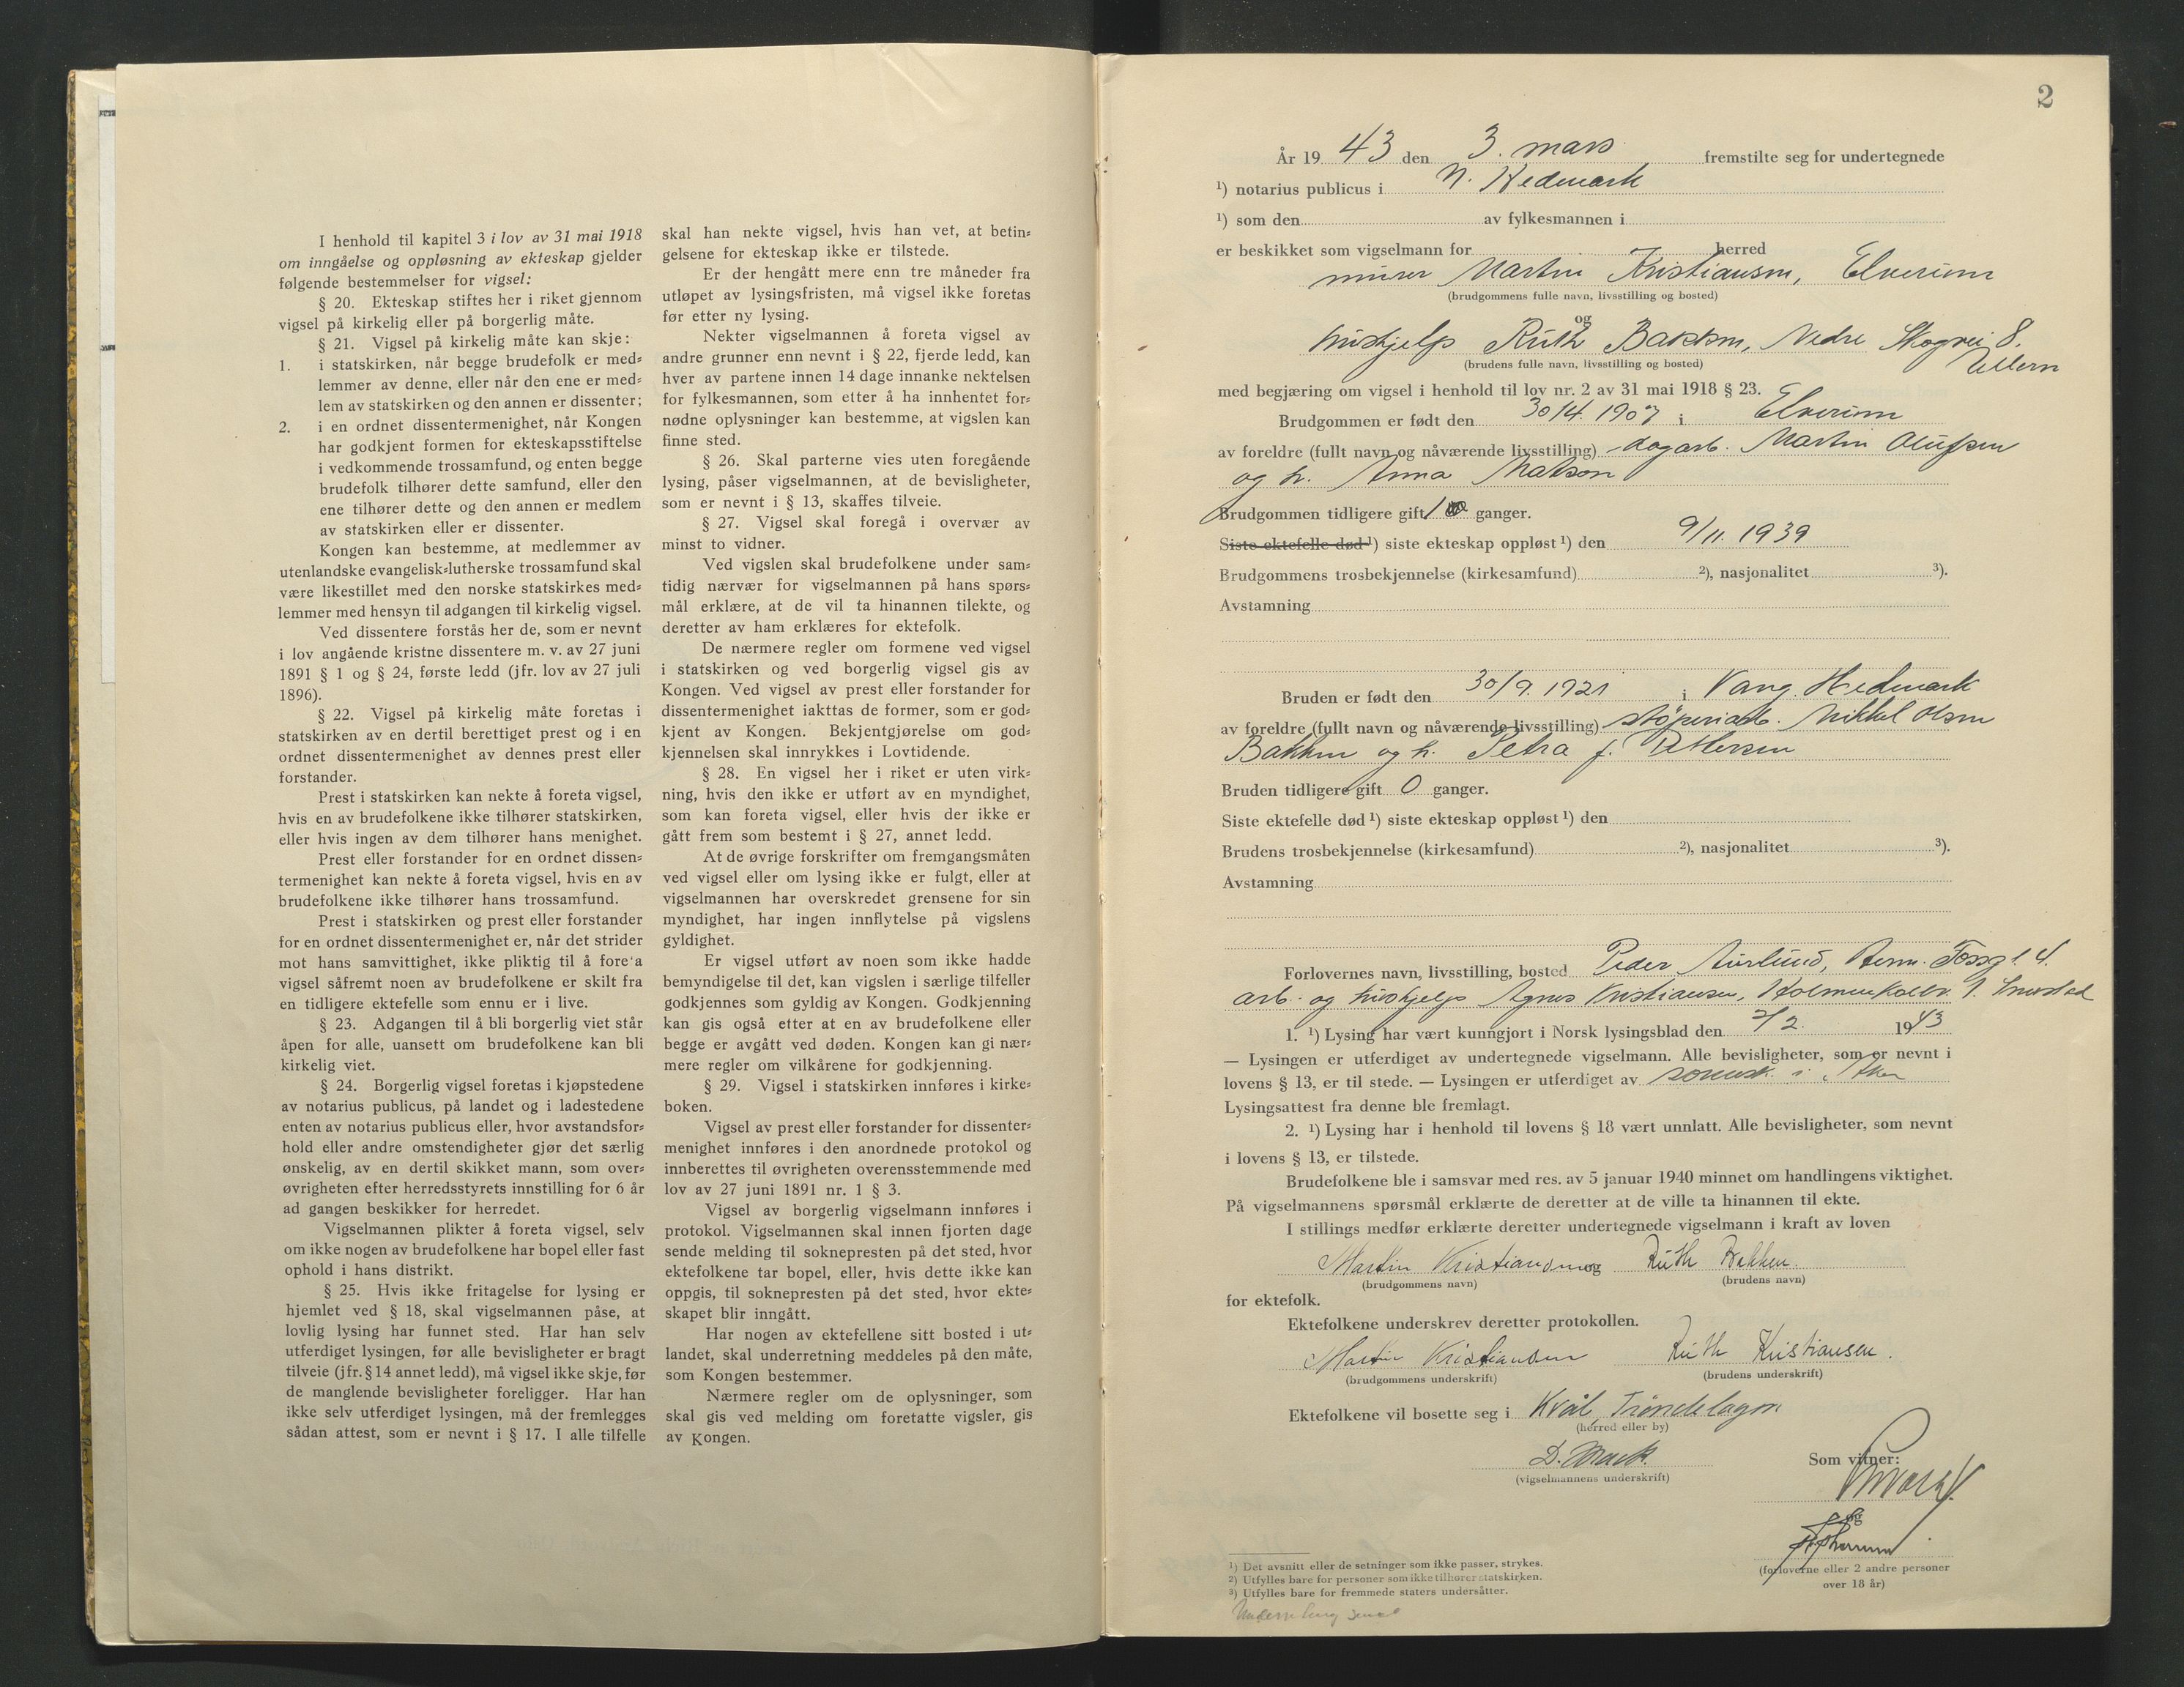 I henhold til kapitel 3 i lov av 31 mai 1918
om inngåelse og oppløsning av ekteskap gjelder
følgende bestemmelser for vigsel:
§ 20. Ekteskap stiftes her i riket gjennom
vigsel på kirkelig eller på borgerlig måte.
§ 21. Vigsel på kirkelig måte kan skje:
1. i statskirken, når begge brudefolk er med-
lemmer av denne, eller når den ene er med-
lem av statskirken og den annen er dissenter;
2. i en ordnet dissentermenighet, når Kongen
har godkjent formen for ekteskapsstiftelse
i vedkommende trossamfund, og enten begge
brudefolk tilhører dette samfund, eller den
ene tilhører dette og den annen er medlem
av statskirken eller er dissenter.
Kongen kan bestemme, at medlemmer av
utenlandske evangelisk-lutherske trossamfund skal
være likestillet med den norske statskirkes med-
lemmer med hensyn til adgangen til kirkelig vigsel.
Ved dissentere forstås her de, som er nevnt
i lov angående kristne dissentere m. v. av 27 juni
1891 § 1 og § 24, første ledd (jfr. lov av 27 juli
1896).
§ 22. Vigsel på kirkelig måte foretas i
statskirken av en dertil berettiget prest og i en
ordnet dissentermenighet av dennes prest eller
forstander.
Prest i statskirken kan nekte å foreta vigsel,
hvis en av brudefolkene ikke tilhører statskirken,
eller hvis ingen av dem tilhører hans menighet.
Prest eller forstander for en ordnet dissen-
termenighet kan nekte å foreta vigsel, hvis en av
brudefolkene ikke tilhører hans trossamfund.
Prest i statskirken og prest eller forstander
for en ordnet dissentermenighet er, når det strider
mot hans samvittighet, ikke pliktig til å foreta
vigsel såfremt noen av brudefolkene er skilt fra
en tidligere ektefelle som ennu er i live.
§ 23. Adgangen til å bli borgerlig viet står
åpen for alle, uansett om brudefolkene kan bli
kirkelig viet.
§ 24. Borgerlig vigsel foretas i kjøpstedene
av notarius publicus, på landet og i ladestedene
enten av notarius publicus eller, hvor avstandsfor-
hold eller andre omstendigheter gjør det særlig
ønskelig, av en dertil skikket mann, som over-
øvrigheten efter herredsstyrets innstilling for 6 år
ad gangen beskikker for herredet.
Vigselmannen plikter å foreta vigsel, selv
om ikke nogen av brudefolkene har bopel eller fast
ophold i hans distrikt.
§ 25. Hvis ikke fritagelse for lysing er
hjemlet ved § 18, skal vigselmannen påse, at
lovlig lysing har funnet sted. Har han selv
utferdiget lysingen, før alle bevisligheter er bragt
tilveie (jfr. § 14 annet ledd), må vigsel ikke skje, før
de manglende bevisligheter foreligger. Har han
ikke selv utferdiget lysingen, må der fremlegges
sådan attest, som er nevnt i § 17. I alle tilfelle
skal han nekte vigsel, hvis han vet, at betin-
gelsene for ekteskap ikke er tilstede.
Er der hengått mere enn tre måneder fra
utløpet av lysingsfristen, må vigsel ikke foretas
før etter ny lysing.
Nekter vigselmannen å foreta vigsel av
andre grunner enn nevnt i § 22, fjerde ledd, kan
hver av partene innen 14 dage innanke nektelsen
for fylkesmannen, som etter å ha innhentet for-
nødne oplysninger kan bestemme, at vigslen kan
finne sted.
§ 26. Skal parterne vies uten foregående
lysing, påser vigselmannen, at de bevisligheter,
som er nevnt i § 13, skaffes tilveie.
§ 27. Vigsel skal foregå i overvær av
minst to vidner.
Ved vigslen skal brudefolkene under sam-
tidig nærvær for vigselmannen på hans spørs-
mål erklære, at de vil ta hinannen tilekte, og
deretter av ham erklæres for ektefolk.
De nærmere regler om formene ved vigsel
i statskirken og ved borgerlig vigsel gis av
Kongen. Ved vigsel av prest eller forstander for
dissentermenighet iakttas de former, som er god-
kjent av Kongen. Bekjentgjørelse om god-
kjennelsen skal innrykkes i Lovtidende.
§ 28. En vigsel her i riket er uten virk-
ning, hvis den ikke er utført av en myndighet,
som kan foreta vigsel, eller hvis der ikke er
gått frem som bestemt i § 27, annet ledd.
At de øvrige forskrifter om fremgangsmåten
ved vigsel eller om lysing ikke er fulgt, eller at
vigselmannen har overskredet grensene for sin
myndighet, har ingen innflytelse på vigslens
gyldighet.
Er vigsel utført av noen som ikke hadde
bemyndigelse til det, kan vigslen i særlige tilfeller
godkjennes som gyldig av Kongen. Godkjenning
kan gis også etter at en av brudefolkene eller
begge er avgått ved døden. Kongen kan gi nær-
mere regler om vilkårene for godkjenning.
§ 29. Vigsel i statskirken innføres i kirke-
boken.
Vigsel av prest eller forstander for dissenter-
menighet innføres i den anordnede protokol og
innberettes til øvrigheten overensstemmende med
lov av 27 juni 1891 nr. 1 § 3.
Vigsel av borgerlig vigselmann innføres i
protokol. Vigselmannen skal innen fjorten dage
sende melding til soknepresten på det sted, hvor
ektefolkene tar bopel, eller, hvis dette ikke kan
oppgis, til soknepresten på det sted, hvor ekte-
skapet blir inngått.
Har nogen av ektefellene sitt bosted i ut-
landet, skal underretning meddeles på den måte,
som Kongen bestemmer.
Nærmere regler om de oplysninger, som
skal gis ved melding om foretatte vigsler, gis
av Kongen.
2
År 19 43 den 3. mars fremstilte seg for undertegnede
1) notarius publicus i N. Hedmark
1) som den av fylkesmannen i
er beskikket som vigselmann for herred
murer Martin Kristiansen, Elverum
(brudgommens fulle navn, livsstilling og bosted)
og
hushjelp Ruth Bakken, Nedre Skogvei 8.
Ullern
(brudens fulle navn, livsstilling og bosted)
med begjæring om vigsel i henhold til lov nr. 2 av 31 mai 1918 § 23.
Brudgommen er født den 30/4. 1907 i Elverum
av foreldre (fullt navn og nåværende livsstilling) dagarb. Martin Olufsen
og h. Anna
Brudgommen tidligere gift 1 ganger.
Siste ektefelle død 1) siste ekteskap oppløst 1) den 9/11. 1939
Brudgommens trosbekjennelse (kirkesamfund) 2), nasjonalitet 3).
Avstamning
Bruden er født den 30/9. 1921 i Vang. Hedmark
av foreldre (fullt navn og nåværende livsstilling) støperiarb. Mikkel Olsen
Bakken og h. Petra f. Pettersen
Bruden tidligere gift 0 ganger.
Siste ektefelle død 1) siste ekteskap oppløst 1) den
Brudens trosbekjennelse (kirkesamfund) 2), nasjonalitet 3).
Avstamning
Forlovernes navn, livsstilling, bosted Peder Aurlund, Fossgt 4.
arb. og hushjelp Agnes Kristiansen, Holmenkollv.
1. 1) Lysing har vært kunngjort i Norsk lysingsblad den 2/2. 1943
— Lysingen er utferdiget av undertegnede vigselmann. Alle bevisligheter, som er nevnt i
lovens § 13, er til stede. — Lysingen er utferdiget av sorensk. i Aker
Lysingsattest fra denne ble fremlagt.
2. 1) Lysing har i henhold til lovens § 18 vært unnlatt. Alle bevisligheter, som nevnt
i lovens § 13, er tilstede.
Brudefolkene ble i samsvar med res. av 5 januar 1940 minnet om handlingens viktighet.
På vigselmannens spørsmål erklærte de deretter at de ville ta hinannen til ekte.
I stillings medfør erklærte deretter undertegnede vigselmann i kraft av loven
Martin Kristiansen og Ruth Bakken.
(brudgommens navn) (brudens navn)
for ektefolk.
Ektefolkene underskrev deretter protokollen.
Martin Kristiansen Ruth Kristiansen.
(brudgommens underskrift) (brudens underskrift)
Ektefolkene vil bosette seg i Kvål, Trøndelagen
(herred eller by)
D. Mack.
(vigselmannens underskrift)
Som vitner:
og
(forloverne eller 2 andre personer
over 18 år)
1) Det avsnitt eller de setninger som ikke passer, strykes.
2) Utfylles bare for personer som ikke tilhører statskirken.
3) Utfylles bare for fremmede staters undersåtter.